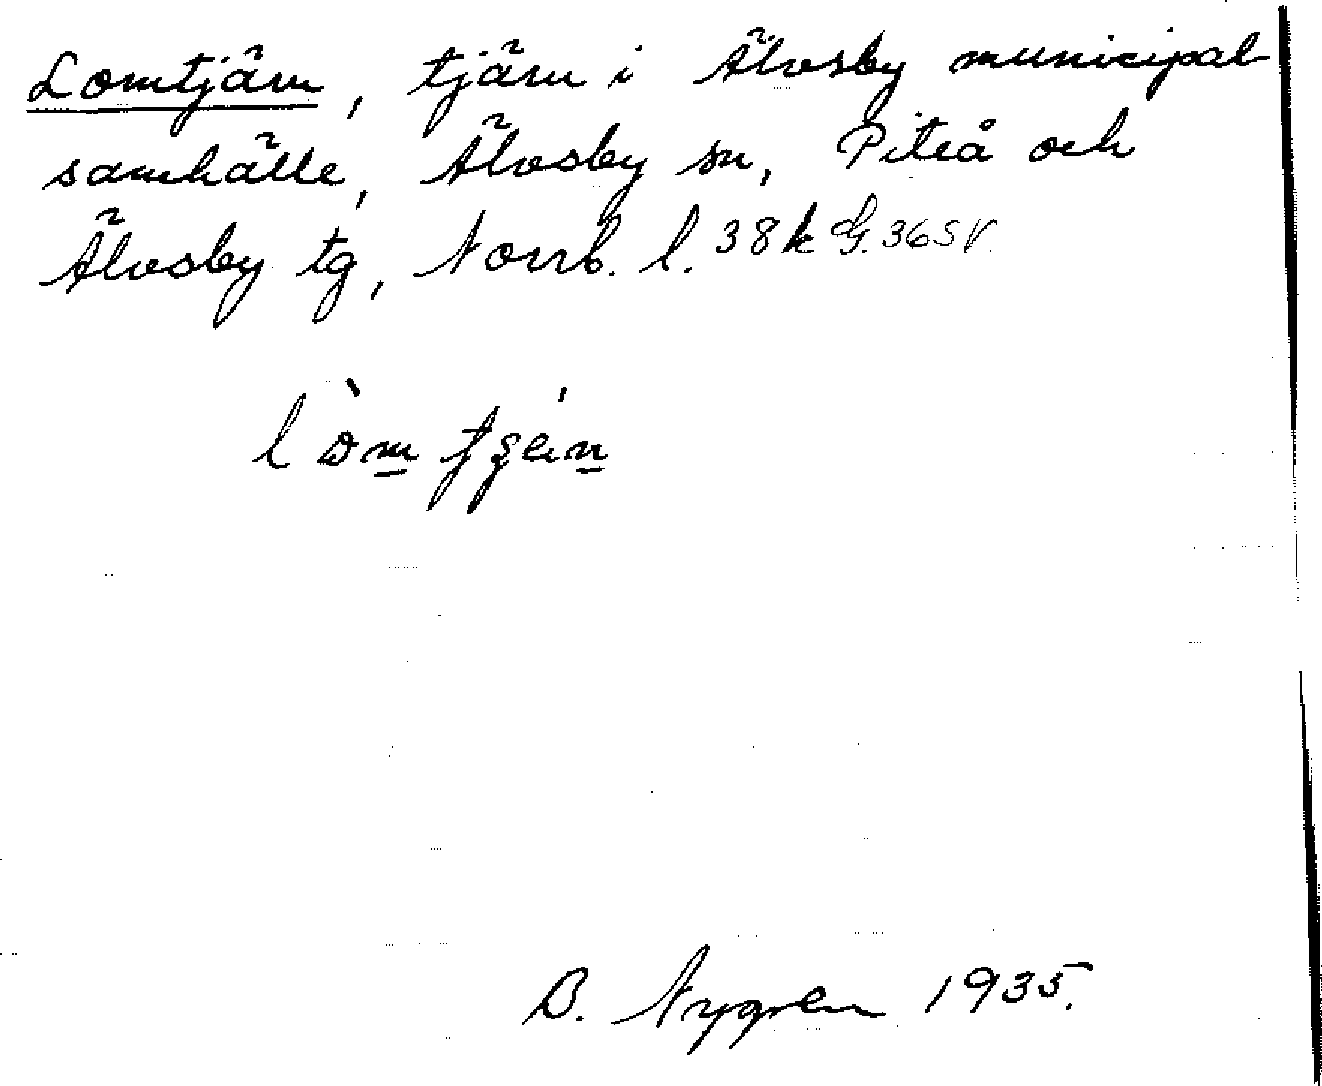 Lomtjärn, tjärn i Älvsby municipal
samhälle, Älvsby sn, Piteå och
Älvsby tg, Norrb. l. 38k G. 36SV.
B. Nygren 1935.